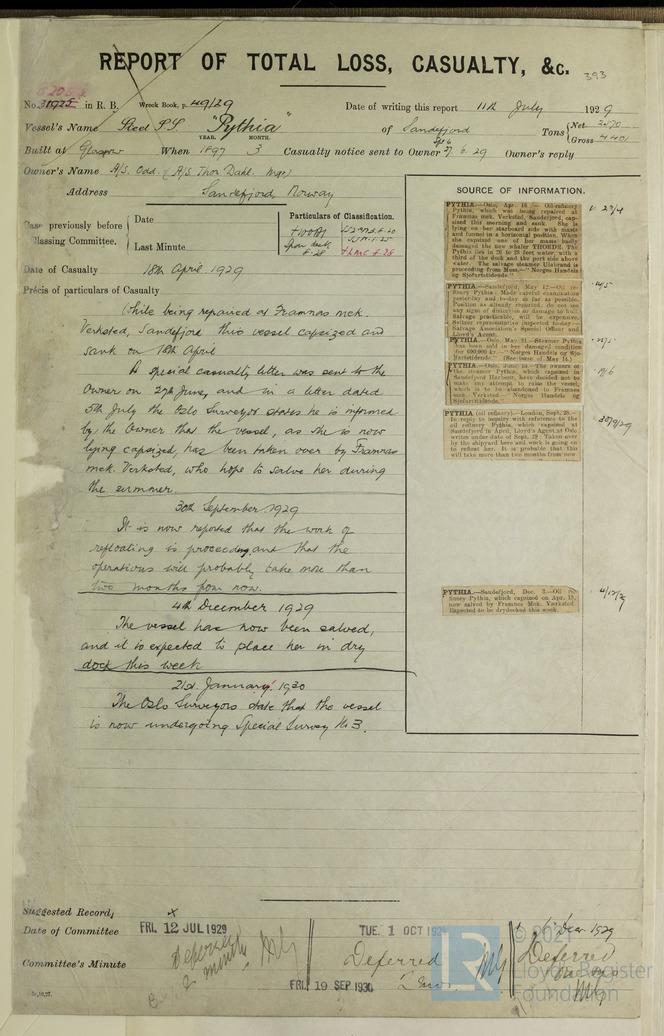 REPORT OF TOTAL LOSS, CASUALTY, &c.
393
No. 31925 in R. B. Wreck Book, p. 49/29
Date of writing this report 11th July 1929
Vessel's Name Steel S.S. "Pythia" of Sandefjord
Tons { Net 2570
Gross 4401
YEAR. MONTH.
Built at Glasgow When 1897 3 Casualty notice sent to Owner 27.6.29 Owner's reply
Owner's Name A/S. Odd. (A/S. Thor Dahl. Mgr)
Address Sandefjord, Norway
Case previously before Classing Committee. { Date
Last Minute
Particulars of Classification.
+100A1
Date of Casualty 18th April. 1929
Précis of particulars of Casualty
While being repaired at Framnas mek.
Verksted, Sandefjord this vessel capsized and
sank on 18th April
A special casualty letter was sent to the
Owner on 27th June, and in a letter dated
5th July the Oslo Surveyor states he is informed
by the Owner that the vessel, as she is now
lying capsized, has been taken over by Framnas
mek. Verksted, who hope to salve her during
the summer.
30th September 1929
It is now reported that the work of
refloating is proceeding and that the
operations will probably take more than
two months from now.
4th December 1929
The vessel has now been salved,
and it is expected to place her in dry
dock this week
21st January 1930
The Oslo Surveyors state that the vessel
is now undergoing Special Survey No 3.
SOURCE OF INFORMATION.
PYTHIA.—Oslo, Apr. 18.—Oil-refinery
Pythia, which was being repaired at
Framnæs mek. Verksted, Sandefjord, cap-
sized this morning and sank. She is
lying on her starboard side with masts
and funnel in a horizontal position. When
she capsized one of her masts badly
damaged the new whaler THORDR. The
Pythia lies in 26 to 28 feet water, with a
third of the deck and the port side above
water. The salvage steamer Uledbrand is
proceeding from Moss.—"Norges Handels
og Sjofartstidende."
PYTHIA.—Sandefjord, May 12.—Oil re-
finery Pythia: Made careful examination
yesterday and to-day as far as possible.
Position as already reported; do not see
any signs of distortion or damage to hull.
Salvage practicable, will be expensive.
Seltzer representative inspected to-day.—
Salvage Association's Special Officer and
Lloyd's Agent.
PYTHIA.—Oslo, May 21.—Steamer Pythia
has been sold in her damaged condition
for 600,000 kr.—"Norges Handels og Sjo-
fartstidende." (See issue of May 14.)
PYTHIA.—Oslo, June 14.—The owners of
the steamer Pythia, which capsized in
Sandefjord Harbour, have decided not to
make any attempt to raise the vessel,
which is to be abandoned to Framnæs
mek. Verksted.—"Norges Handels og
Sjofartstidende."
PYTHIA (oil refinery).—London, Sept. 28.—
In reply to inquiry with reference to the
oil refinery Pythia, which capsized at
Sandefjord in April, Lloyd's Agent at Oslo
writes under date of Sept. 12: Taken over
by the shipyard here and work is going on
to refloat her. It is probable that this
will take more than two months from now
30/9/29
PYTHIA.—Sandefjord, Dec. 3.—Oil re-
finery Pythia, which capsized on Apr. 18,
now salved by Framnæs Mek. Verksted.
Expected to be drydocked this week.
4/12/29
Suggested Record,
Date of Committee FRI. 12 JUL 1929 TUE. 1 OCT 1929
Committee's Minute Deferred 2 months Deferred 2 mos. Deferred
FRI. 19 SEP 1930
LR
© 2021
Lloyd's Register
Foundation